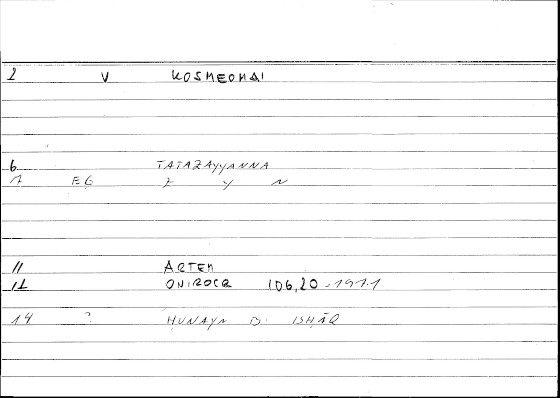 2 V KOSMEOMAI
6 TATAZAYYANNA
7 EG Z Y N
11 ARTEM
12 ONIROCR 106,20 - 197.1
14 ? ḤUNAYN B. ISḤĀQ